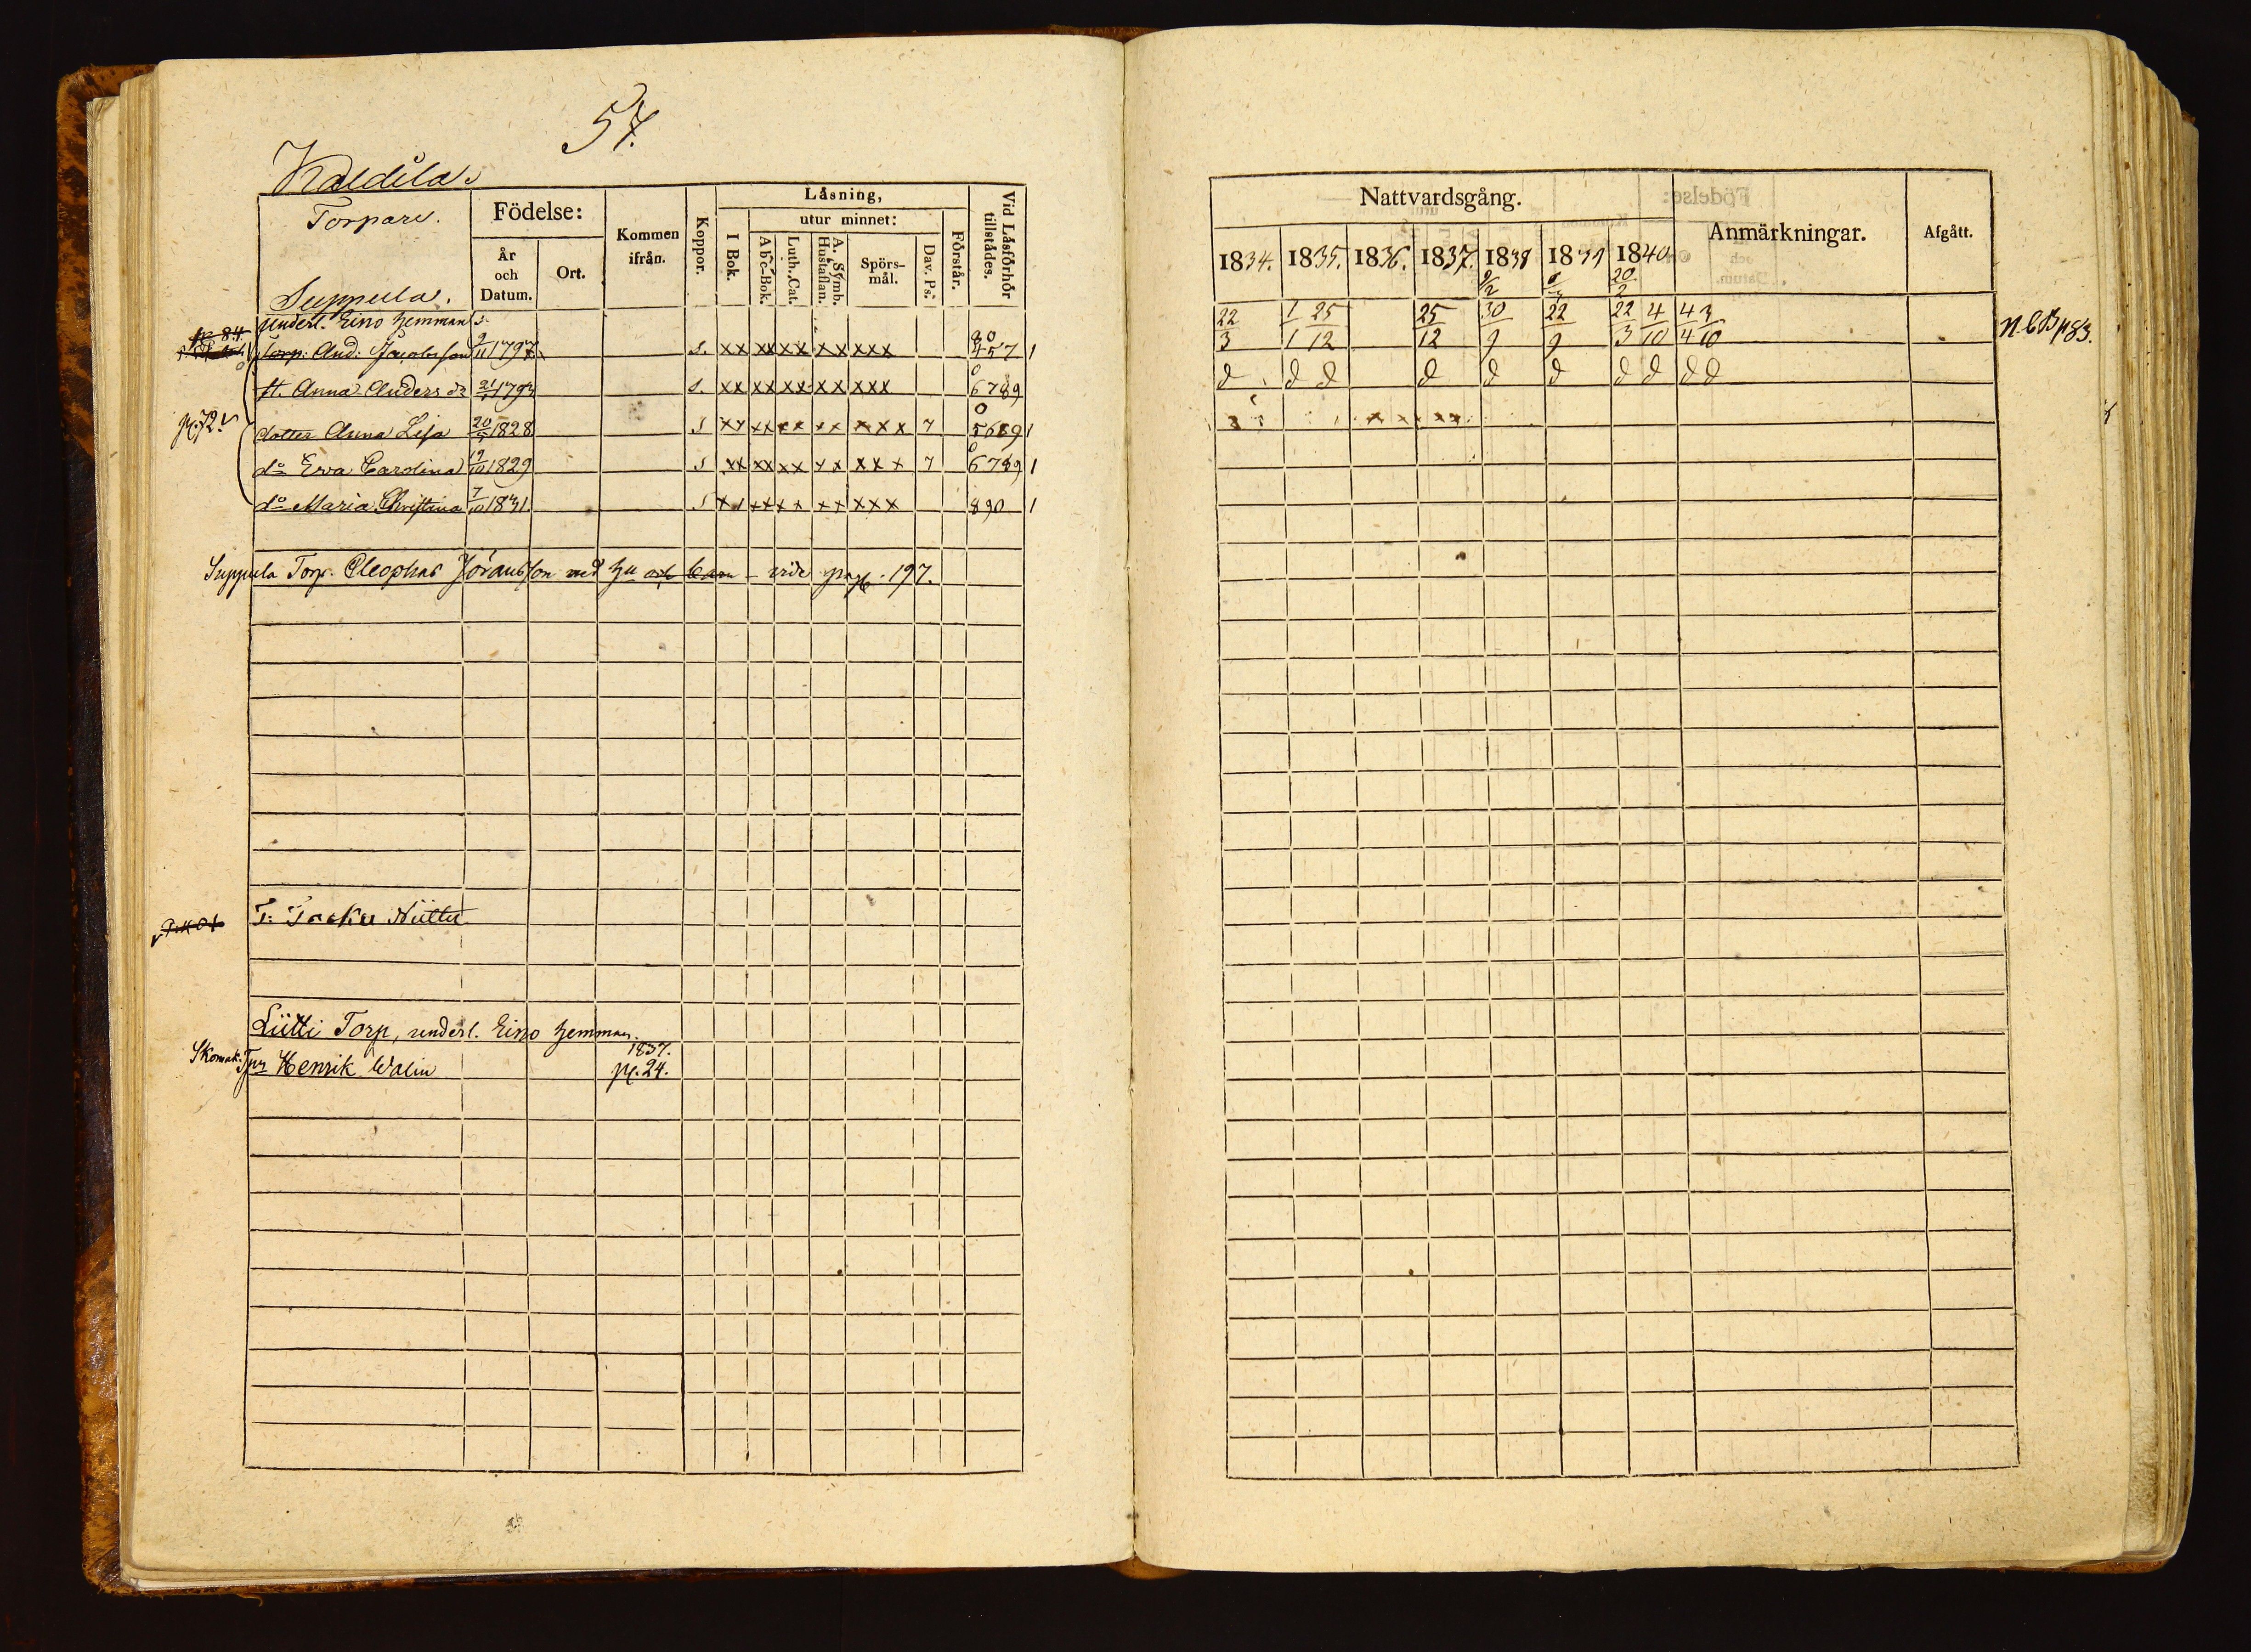 57.
Kaldila.
Torpare.
Födelse:
År och Datum.
Ort.
Kommen ifrån.
Koppor.
Låsning,
I Bok.
utur minnet:
Abc-Bok.
Luth. Cat.
A. Symb. Hustaflan.
Spörsmål.
Dav. Ps:
Förstår.
Vid Låsförhör tillstådes.
Suppula.
underl. Eino hemman
p 84
Torp: And: Jacobsson 9/11 1797 s. xx xx xx xx xxx 80 457 1
h. Anna Anders dr 21/1 179 s. xx xx xx xx xxx 0 6789
p. 72.
dotter Anna Lisa 20/5 1828 s xx xx xx xx xxx 7 0 5689 1
do Eva Carolina 19/10 1829 s xx xx xx xx xxx 7 0 6789 1
do Maria Christina 7/10 1831. s xx xx xx xx xxx 890 1
Suppula Torp. Cleophas Jöransson med hu och barn – vide pag. 197.
T:
Lütti Torp, underl. Eino hemman.
1837.
Skomak. Tpr Henrik Walin p. 24.
Nattvardsgång.
Anmärkningar.
Afgått.
1834. 1835. 1836. 1837. 1838 1839 1840
9/2 20/2
22/3 1/1 25/12 25/12 30/9 22/9 22/3 4/10 4/4 3/10
N.C.B. p 83.
d d d d d d d d d d